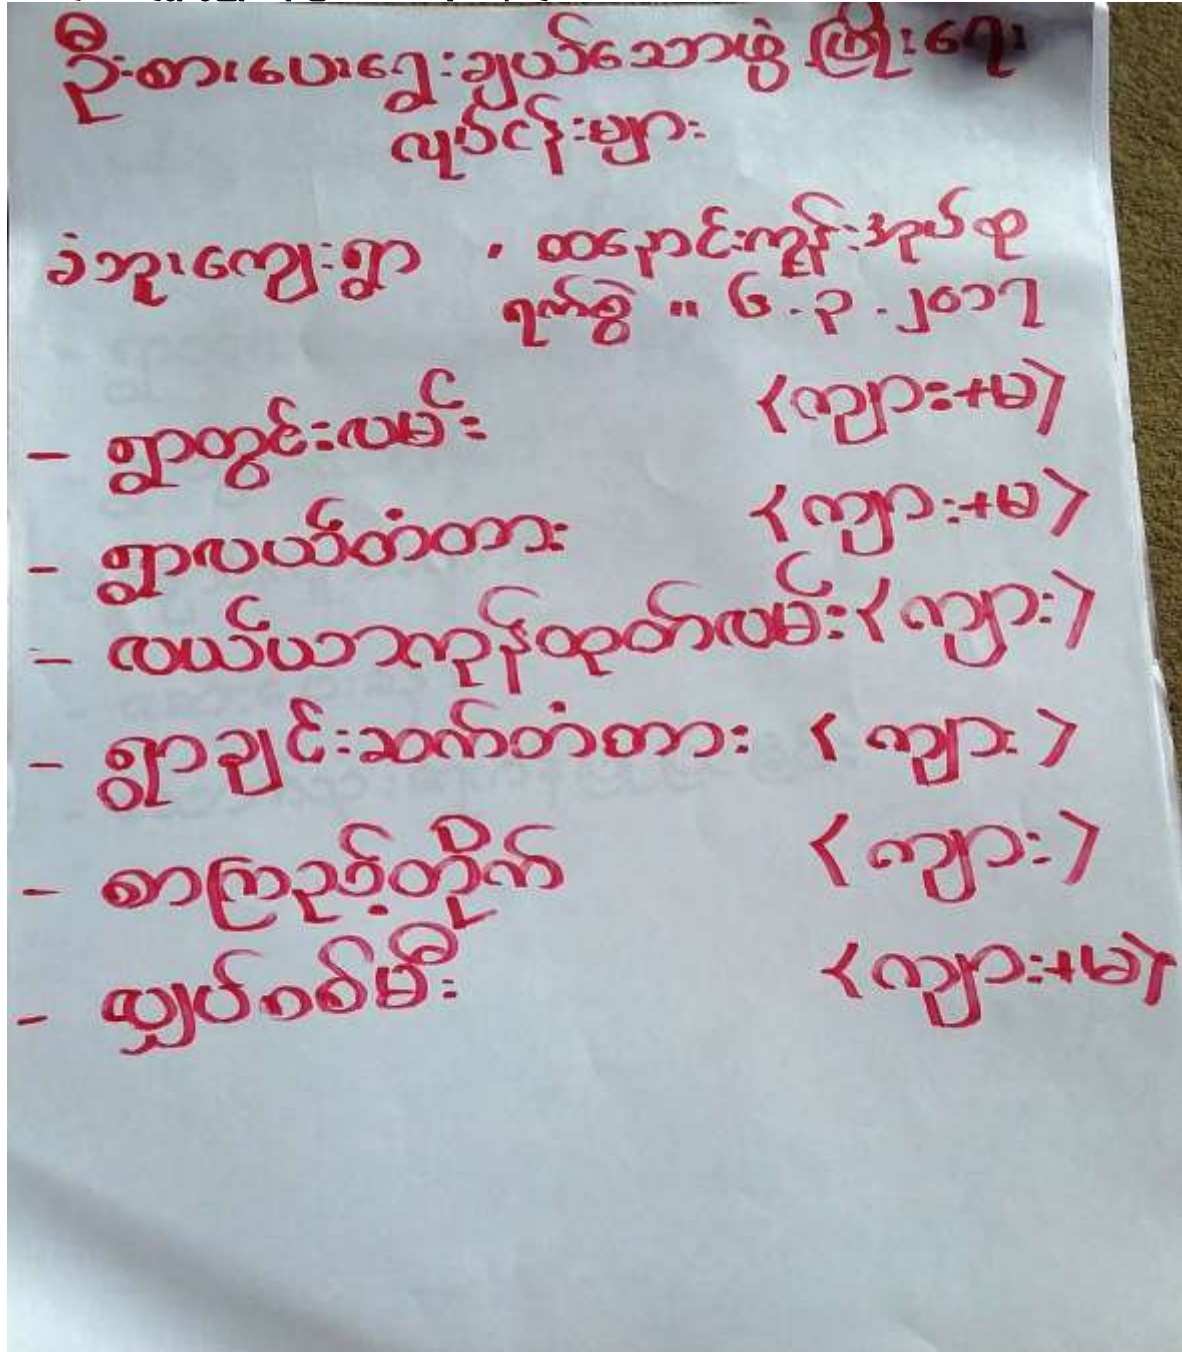 ဦးစားပေးရွေးချယ်သောဖွံ့ဖြိုးရေး
လုပ်ငန်းများ
ခံဘူးကျေးရွာ ၊ ထနောင်းကုန်းအုပ်စု
ရက်စွဲ ။ ၆.၃.၂၀၁၇
- ရွာတွင်းလမ်း <ကျား+မ>
- ရွာလယ်တံတား <ကျား+မ>
- လယ်ယာကုန်ထုတ်လမ်း <ကျား>
- ရွာချင်းဆက်တံတား <ကျား>
- စာကြည့်တိုက် <ကျား>
- လျှပ်စစ်မီး <ကျား+မ>